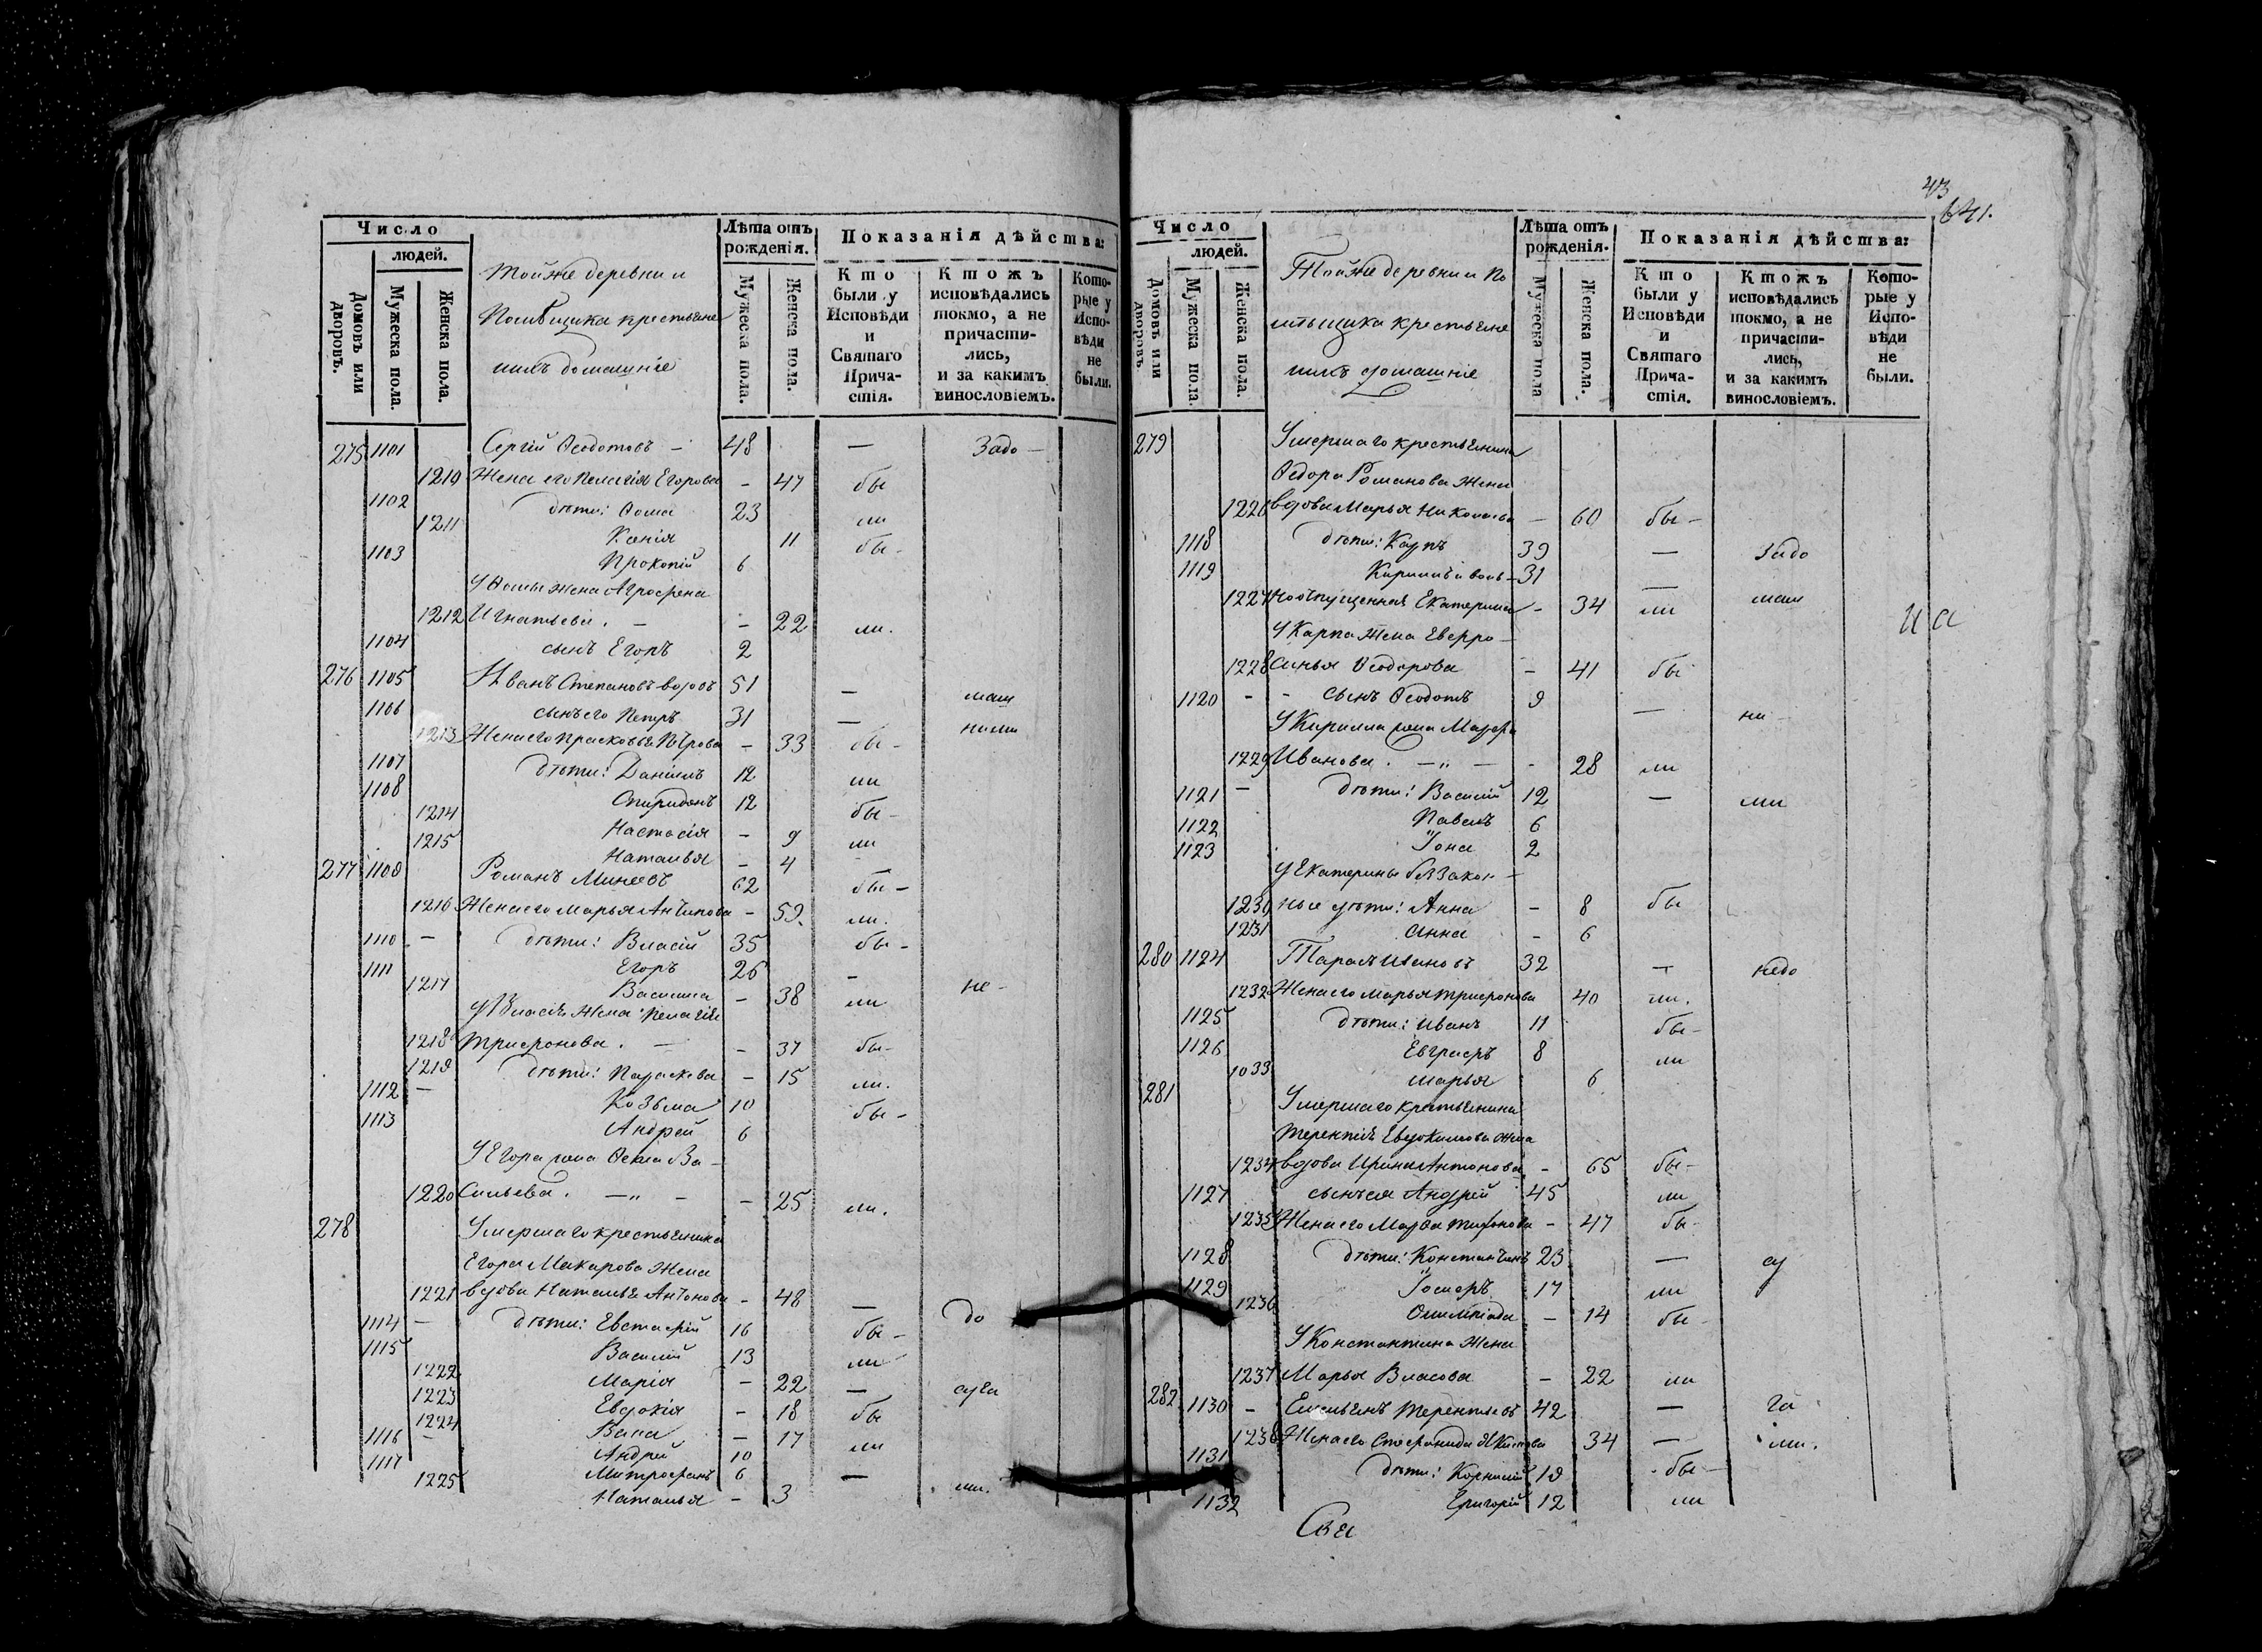 43
641.
Число
людей.
Домовъ или дворовъ.
Мужеска пола.
Женска пола.
Тойже деревни и
Помѣщика крестьяне
ихъ домашніе
Лѣта отъ рожденія.
Мужеска пола.
Женска пола.
Показанія дѣйства:
Кто были у Исповѣди и Святаго Прича-стія.
Ктожъ исповѣдались токмо, а не причасти-лись, и за какимъ винословіемъ.
Кото-рые у Испо-вѣди не были.
275 1101 Сергій Ѳеодотовъ - 48 — Задо —
1210 Жена его Пелагія Егорова - 47 бы
1102 дѣти: Ѳома 23 ли
1211 Ксенія 11 бы -
1103 Прокопій 6
У Ѳомы жена Агрофена
1212 Игнатьева. - - 22 ли.
1104 сынъ Егоръ 2
276 1105 Иванъ Степановъ вдовъ 51 —
1106 сынъ его Петръ 31 —
1213 Жена его Прасковья Петрова - 33 бы -
1107 дѣти: Даніилъ 12 ли
1108 Спиридонъ 12 бы -
1214 Настасія - 9 ли
1215 Наталья - 4
277 1109 Романъ Минеевъ 62 бы -
1216 Жена его Марья Антипова - 59. ли.
1110 - дѣти: Власій 35 бы -
1111 Егоръ 26 — не -
1217 Василиса - 38 ли
У Власія жена Пелагія
1218 Трифонова. - - 37 бы-
1219 дѣти: Параскева - 15 ли.
1112 - Козьма 10 бы -
1113 Андрей 6
У Егора жена Ѳекла Ва-
1220 сильева. —"— - 25 ли.
278 Умершаго крестьянина
Егора Макарова жена
1221 вдова Наталья Антонова - 48 — до
1114 - дѣти: Евстафій 16 бы -
1115 Василій 13 ли
1222 Марія - 22 —
1223 Евдокія - 18 бы
1224 Васса - 17 ли
1116 - Андрей 10
1117 Митрофанъ 6 —
1225 Наталья - 3
Число
людей.
Домовъ или дворовъ.
Мужеска пола.
Женска пола.
Тойже деревни и По
мѣщика крестьяне
ихъ домашніе
Лѣта отъ рожденія.
Мужеска пола
Женска пола.
Показанія дѣйства:
Кто были у Исповѣди и Святаго Прича-стія.
Ктожъ исповѣдались токмо, а не причасти-лись, и за какимъ винословіемъ.
Кото-рые у Испо-вѣди не были.
279 Умершаго крестьянина
Ѳедора Романова жена
1226 вдова Марья Никонова - 60 бы -
1118 дѣти: Карпъ 39 — Задо
1119 Кириллъ и воль- 31 —
1227 ноотпущенная Екатерина - 34 ли
У Карпа жена Евфро-
1228 синья Ѳеодорова - 41 бы
1120 - - сынъ Ѳеодотъ 9 —
У Кирилла жена Марфа
1229 Иванова. —"— - 28 ли
1121 - дѣти: Василій 12 —
1122 Павелъ 6
1123 Іона 2
У Екатерины беззакон-
1230 ные дѣти: Анна - 8 бы
1231 Анна - 6
280 1124 Тарасъ Ивановъ 32 — недо
1232 Жена его Марья Трифонова 40 ли.
1125 дѣти: Иванъ 11 бы-
1126 Евграфъ 8 ли
1033 Марья 6
281 Умершаго крестьянина
Терентія Евдокимова жена
1234 вдова Ирина Антонова - 65 бы-
1127 сынъ ея Андрей 45 ли
1235 Жена его Марѳа Тихонова - 47 бы-
1128 дѣти: Константинъ 23 — су
1129 Іосифъ 17 ли
1236 Олимпіада - 14 бы -
У Константина жена
1237 Марья Власова - 22 ли
282 1130 - Емельянъ Терентьевъ 42 —
1238 Жена его Стефанида 34 —
1131 дѣти: Корнилій 19 бы -
1132 Григорій 12 ли